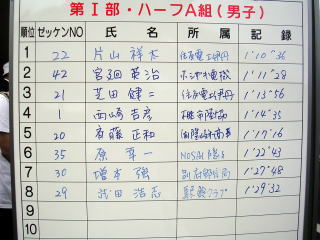 第Ⅰ部・ハーフA組(男子)
順位 ゼッケンNO 氏・名 所属 記録
1 22 片山 祥太 住友電工伊丹 1°10'36
2 42 宮廻 英治 ホシザキ電機 1°11'28
3 21 芝田 健二 住友電工伊丹 1°13'56
4 1 西嶋 吾彦 1°14'35
5 20 斉藤 正和 1°17'16
6 35 原 幸一 NOSAI 1°22'43
7 30 増本 強 1°27'48
8 29 武田 浩志 クラブ 1°29'32
9
10